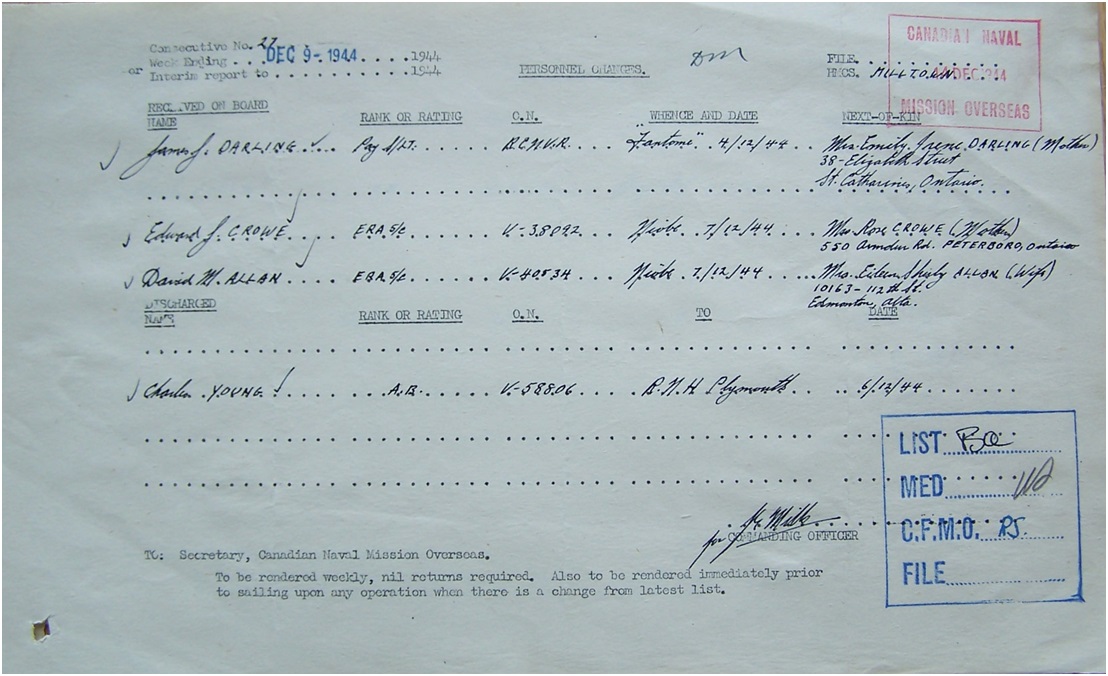 Consecutive No. 27
Week Ending ... DEC 9-1944 ....1944
or Interim report to ..........1944
PERSONNEL CHANGES.
FILE............
HMCS. MILLTOWN...
CANADIAN NAVAL
DEC 1944
MISSION OVERSEAS
RECEIVED ON BOARD
NAME RANK OR RATING O.N. WHENCE AND DATE NEXT-OF-KIN
James J. DARLING Pay S/Lt. R.C.N.V.R. "Fantome" 4/12/44 Mrs. Emily Irene DARLING (Mother)
38-Elizabeth Street
St. Catharines, Ontario.
Edward J. CROWE ERA 5/c V-38092 Niobe 7/12/44 Mrs Rose CROWE (Mother)
550 Armour Rd. PETERBORO, Ontario
David M. ALLAN ERA 5/c V-40534 Niobe 7/12/44 Mrs. Eileen Shirly ALLAN (Wife)
10163-112th St.
Edmonton, Alta.
DISCHARGED
NAME RANK OR RATING O.N. TO DATE
Charles YOUNG A.B. V-58806 R.N.H Plymouth 6/12/44
LIST
MED
C.F.M.O. RS.
FILE
for COMMANDING OFFICER
TO: Secretary, Canadian Naval Mission Overseas.
To be rendered weekly, nil returns required. Also to be rendered immediately prior
to sailing upon any operation when there is a change from latest list.